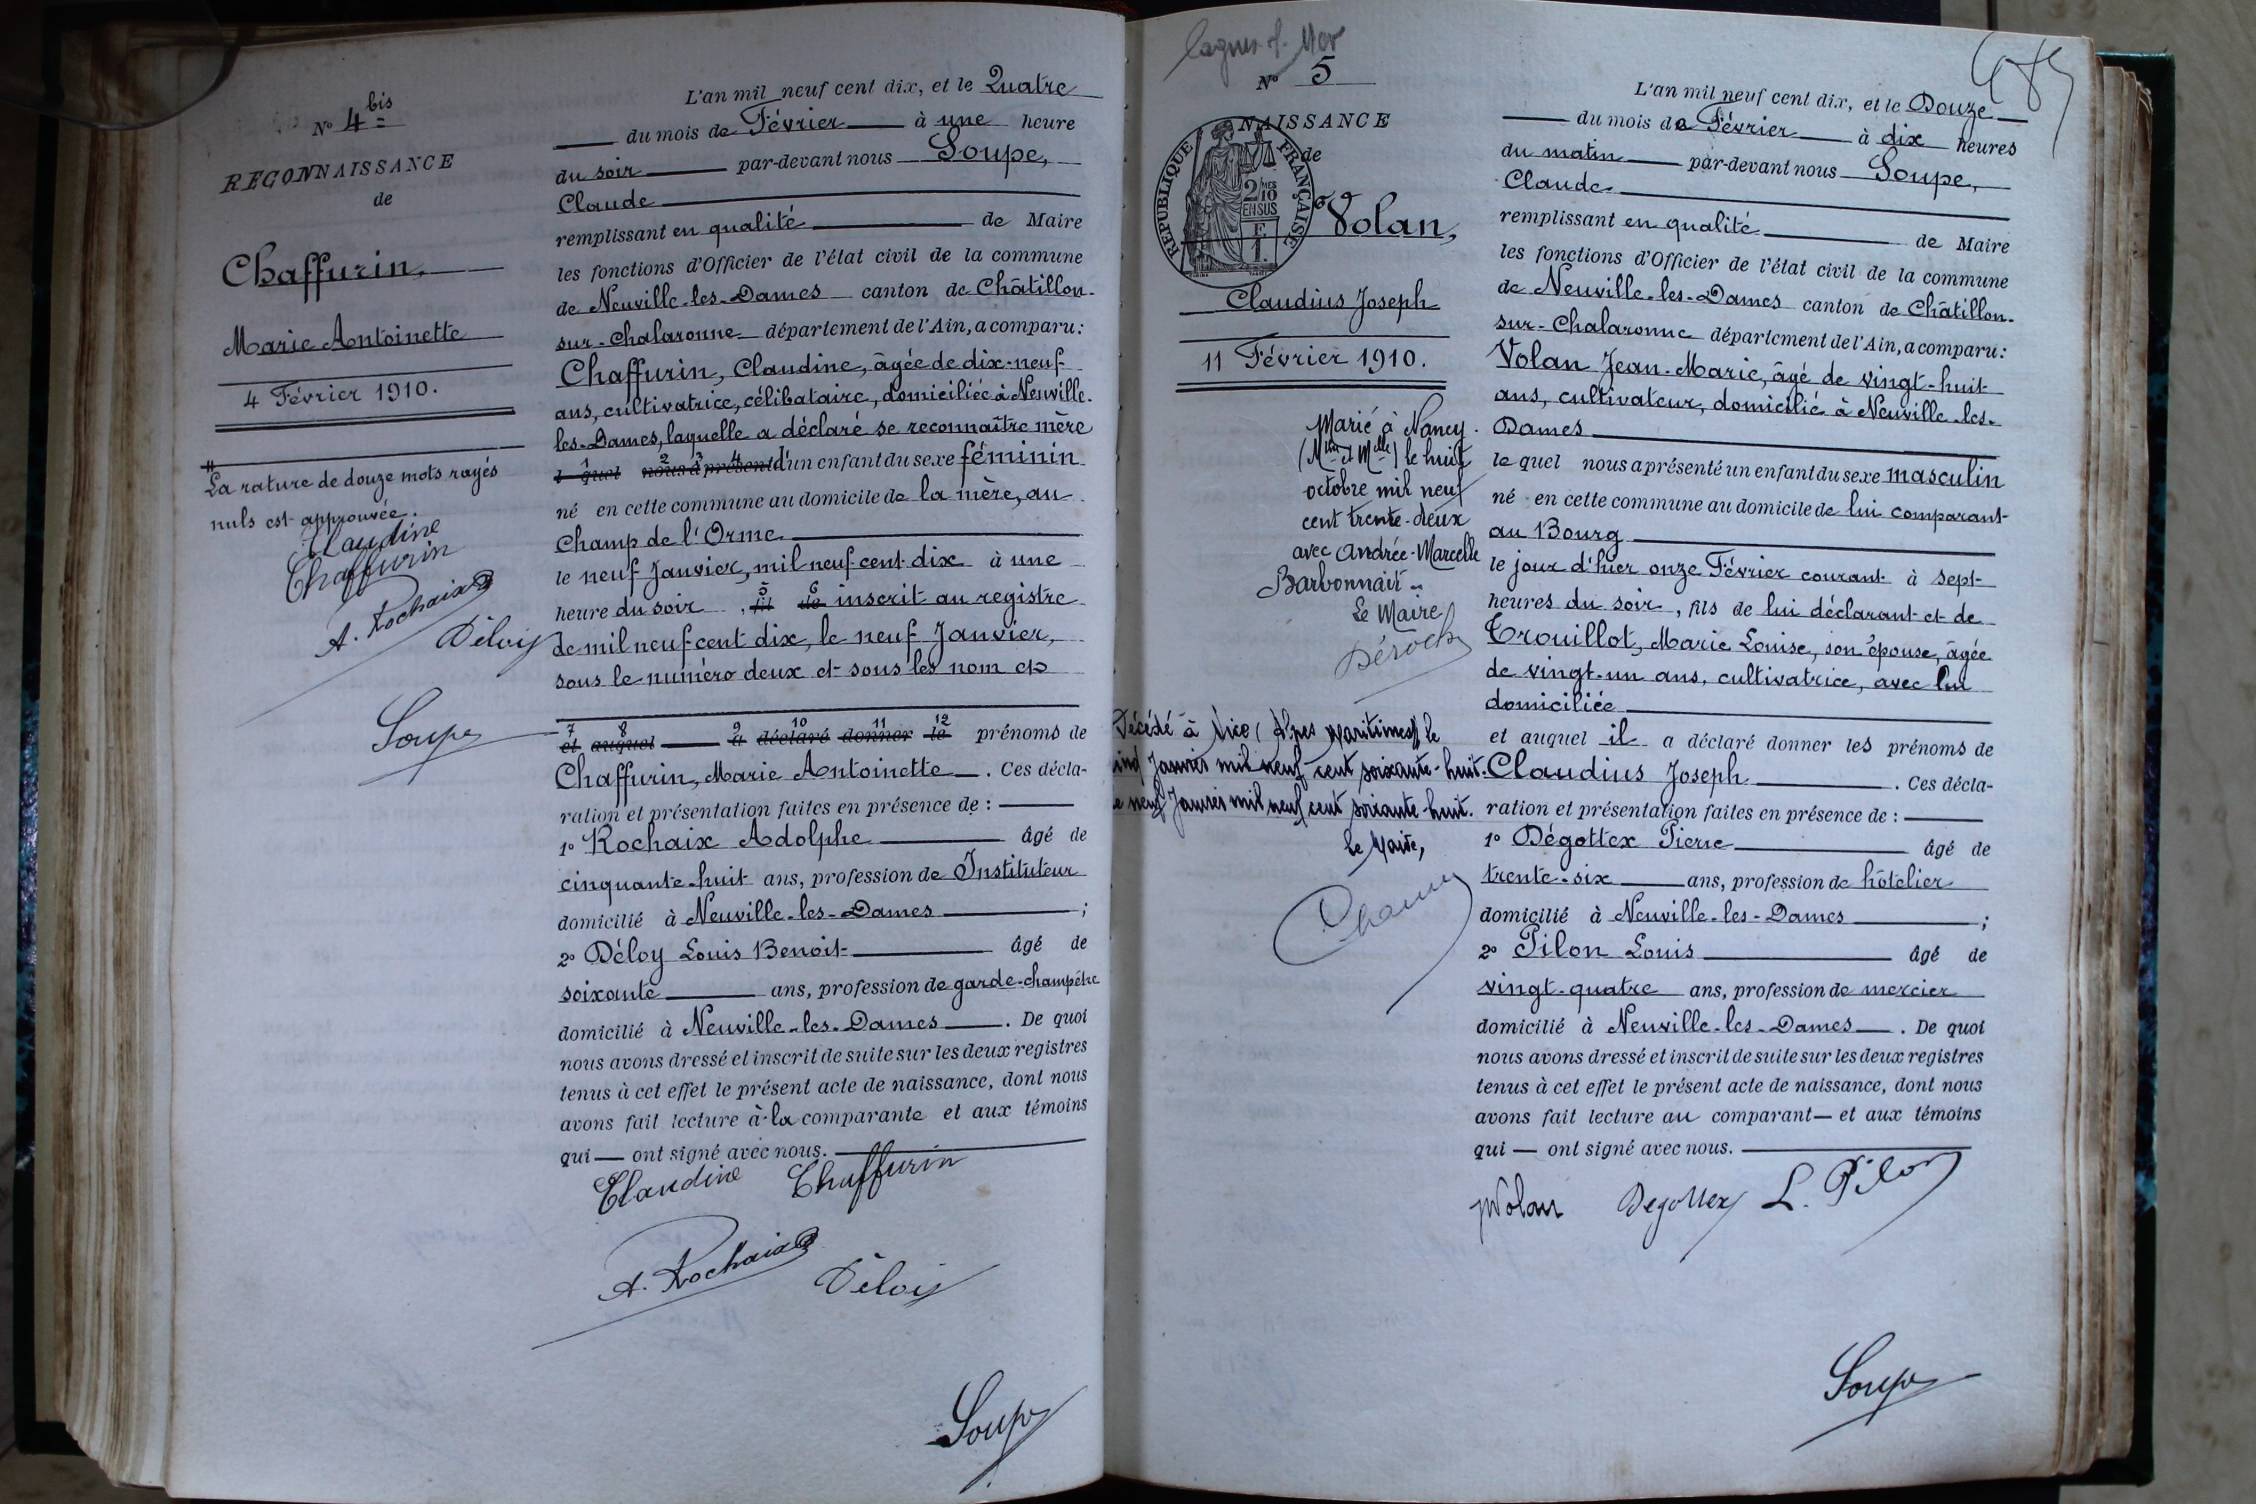 N° 4 bis
RECONNAISSANCE
de
Chaffurin,
Marie Antoinette
4 Février 1910.
La rature de douze mots rayés
nuls est approuvée.
Claudine
Chaffurin
A. Rochaix
Déloy
Soupe
L'an mil neuf cent dix, et le Quatre
du mois de Février à une heure
du soir par-devant nous Soupe,
Claude
remplissant en qualité de Maire
les fonctions d'Officier de l'état civil de la commune
de Neuville-les-Dames canton de Châtillon-
sur-Chalaronne département de l'Ain, a comparu:
Chaffurin, Claudine, âgée de dix-neuf
ans, cultivatrice, célibataire, domiciliée à Neuville-
les-Dames, laquelle a déclaré se reconnaître mère
1 2 3 4
l quel nous a présenté d'un enfant du sexe féminin
né en cette commune au domicile de la mère, au
Champ de l'Orme
le neuf Janvier, mil neuf cent dix à une
5 6
heure du soir, fil de inscrit au registre
de mil neuf cent dix, le neuf Janvier,
sous le numéro deux et sous les nom et
7 8 9 10 11 12
et auquel a déclaré donner le prénoms de
Chaffurin, Marie Antoinette. Ces décla-
ration et présentation faites en présence de :
1° Rochaix Adolphe âgé de
cinquante-huit ans, profession de Instituteur
domicilié à Neuville-les-Dames ;
2° Déloy Louis Benoit âgé de
soixante ans, profession de garde-champêtre
domicilié à Neuville-les-Dames. De quoi
nous avons dressé et inscrit de suite sur les deux registres
tenus à cet effet le présent acte de naissance, dont nous
avons fait lecture à la comparante et aux témoins
qui ont signé avec nous.
Claudine Chaffurin
A. Rochaix
Déloy
Soupe
N° 5
NAISSANCE
de
RÉPUBLIQUE FRANÇAISE
2 MES
10
EN SUS
Volan,
Claudius Joseph
11 Février 1910.
Marié à Nancy
(Mthe et Mlle) le huit
octobre mil neuf
cent trente-deux
avec Andrée-Marcelle
Le Maire
Décédé à Nice (Alpes Maritimes) le
cinq Janvier mil neuf cent soixante-huit.
le neuf Janvier mil neuf cent soixante-huit.
le Maire,
L'an mil neuf cent dix, et le Douze
du mois de Février à dix heures
du matin par-devant nous Soupe,
Claude
remplissant en qualité de Maire
les fonctions d'Officier de l'état civil de la commune
de Neuville-les-Dames canton de Châtillon-
sur-Chalaronne département de l'Ain, a comparu:
Volan Jean-Marie, âgé de vingt-huit
ans, cultivateur, domicilié à Neuville-les-
Dames
le quel nous a présenté un enfant du sexe masculin
né en cette commune au domicile de lui comparant
au Bourg
le jour d'hier onze Février courant à sept
heures du soir, fils de lui déclarant et de
Trouillot, Marie Louise, son épouse, âgée
de vingt-un ans, cultivatrice, avec lui
domiciliée
et auquel il a déclaré donner les prénoms de
Claudius Joseph. Ces décla-
ration et présentation faites en présence de :
1° Dégottex Pierre âgé de
trente-six ans, profession de hôtelier
domicilié à Neuville-les-Dames ;
2° Pilon Louis âgé de
vingt-quatre ans, profession de mercier
domicilié à Neuville-les-Dames. De quoi
nous avons dressé et inscrit de suite sur les deux registres
tenus à cet effet le présent acte de naissance, dont nous
avons fait lecture au comparant et aux témoins
qui ont signé avec nous.
Volan Degottex L. Pilon
Soupe